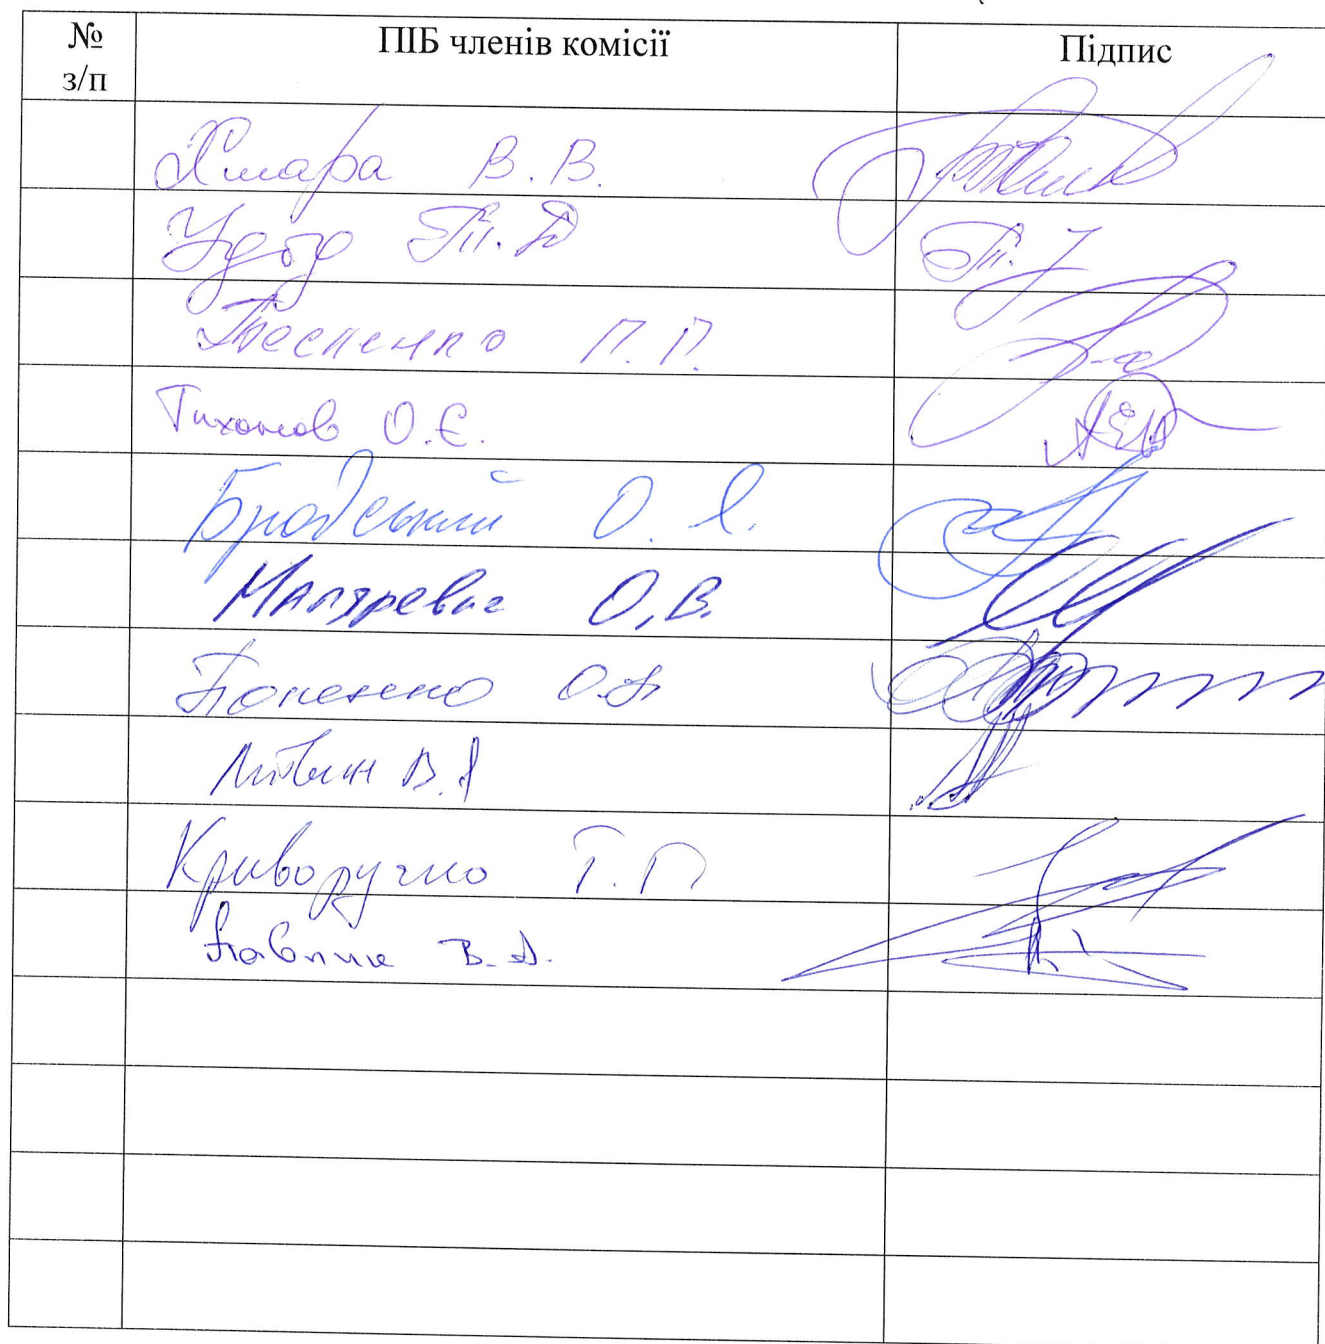 № з/п ПІБ членів комісії Підпис
Хмара В. В.
Удод Т. Д
Тесленко П. П.
Тихонов О.Є.
Бродський О. Я.
О, В.
О.
Литвин В. Я
Криворучко Т. П
Павлик В. А.